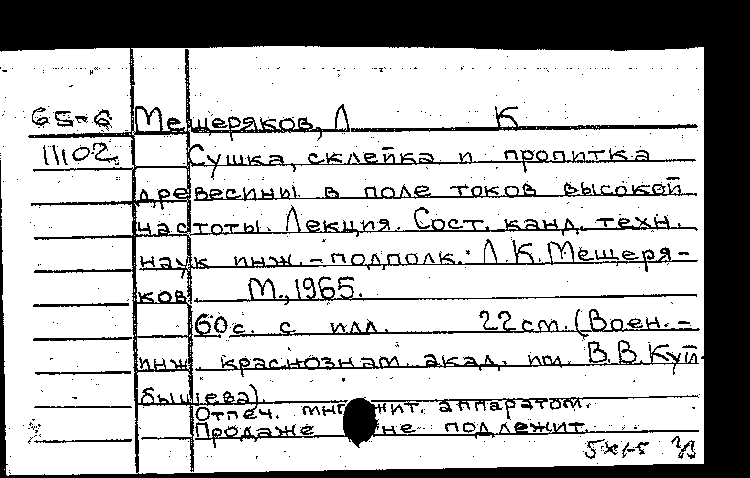 65-6 Мещеряков, Л К
11102 Сушка, склейка и пропитка
древесины в поле токов высокой
частоты. Лекция. Сост. канд. техн.
наук инж.-подполк. Л.К. Мещеря-
ков. М., 1965.
60 с. с илл. 22 см. (Воен.-
инж. краснознам. акад. им. В.В. Куй-
бышева).
Отпеч. множит. аппаратом.
Продаже не подлежит